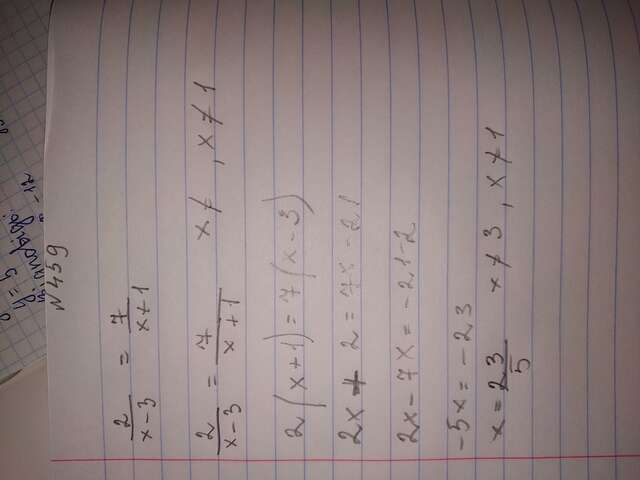 N459
2/(x-3) = 7/(x+1)
2/(x-3) = 7/(x+1) x≠ , x≠1
2(x+1)=7(x-3)
2x+2=7x-21
2x-7x=-21-2
-5x=-23
x=23/5 x≠3, x≠1
y=5